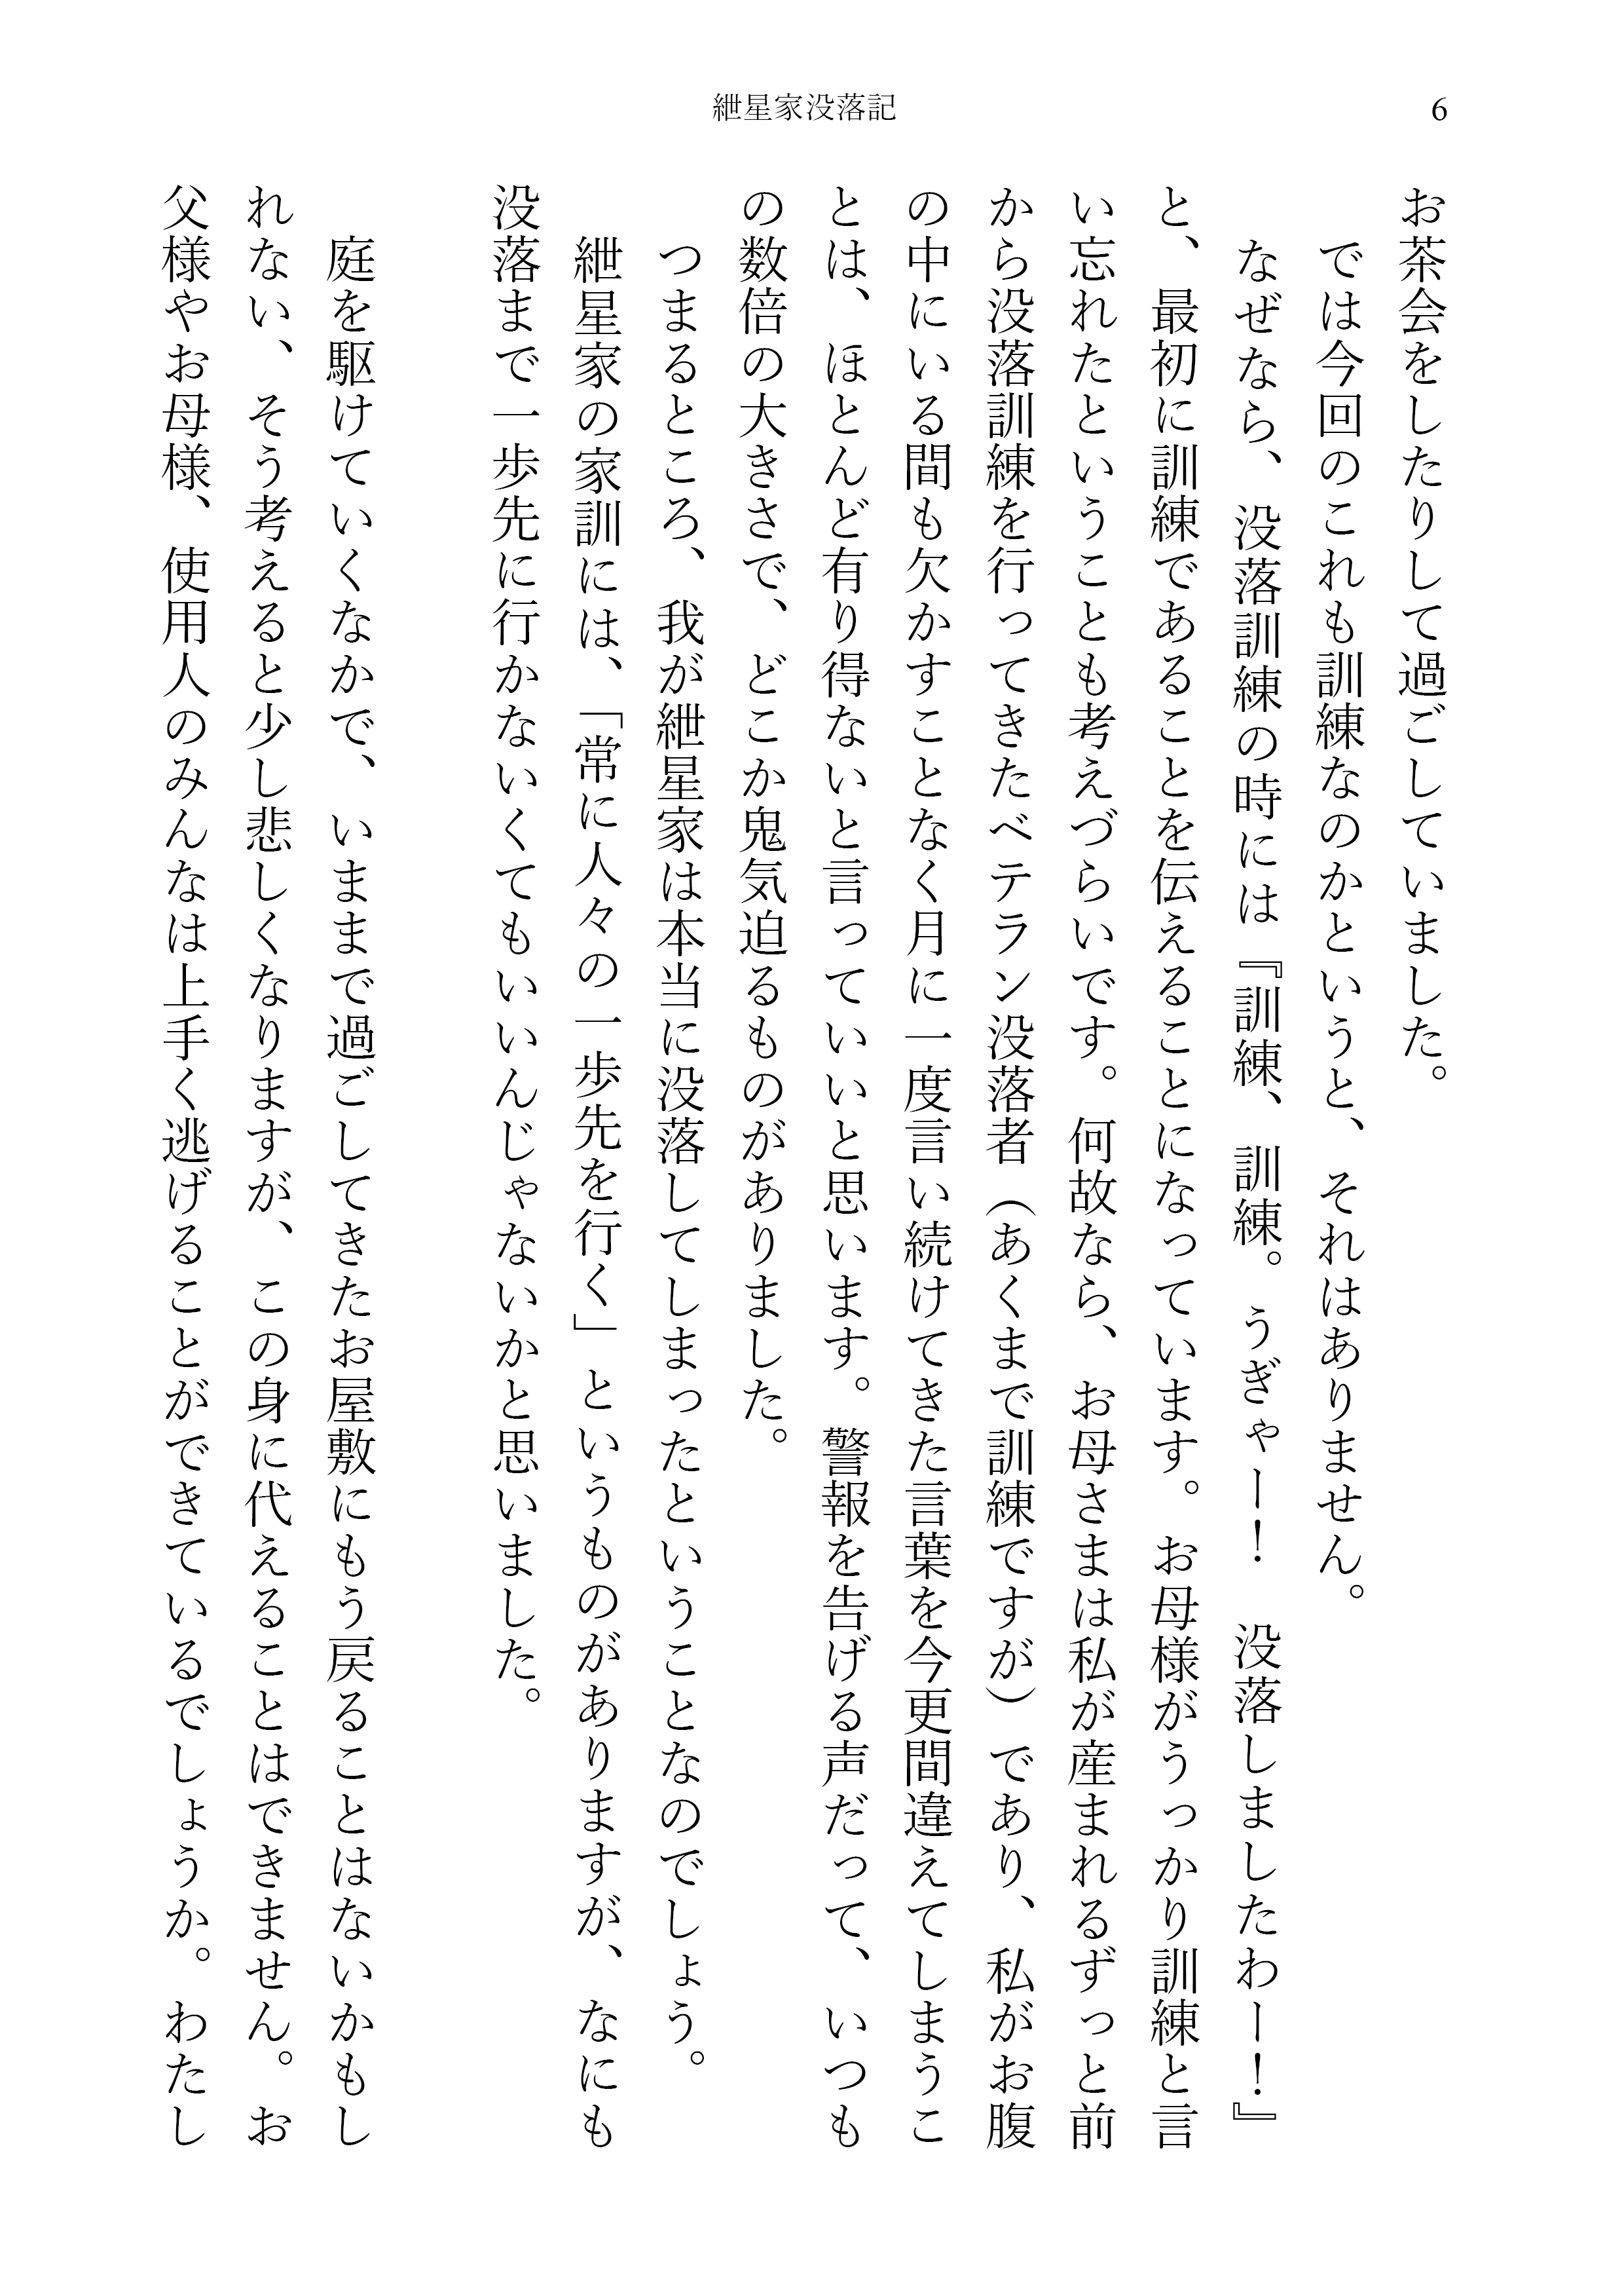 紲星家没落記
6
お茶会をしたりして過ごしていました。
では今回のこれも訓練なのかというと、それはありません。
なぜなら、没落訓練の時には『訓練、訓練。うぎゃー！　没落しましたわー！』
と、最初に訓練であることを伝えることになっています。お母様がうっかり訓練と言
い忘れたということも考えづらいです。何故なら、お母さまは私が産まれるずっと前
から没落訓練を行ってきたベテラン没落者（あくまで訓練ですが）であり、私がお腹
の中にいる間も欠かすことなく月に一度言い続けてきた言葉を今更間違えてしまうこ
とは、ほとんど有り得ないと言っていいと思います。警報を告げる声だって、いつも
の数倍の大きさで、どこか鬼気迫るものがありました。
つまるところ、我が紲星家は本当に没落してしまったということなのでしょう。
紲星家の家訓には、「常に人々の一歩先を行く」というものがありますが、なにも
没落まで一歩先に行かないくてもいいんじゃないかと思いました。
庭を駆けていくなかで、いままで過ごしてきたお屋敷にもう戻ることはないかもし
れない、そう考えると少し悲しくなりますが、この身に代えることはできません。お
父様やお母様、使用人のみんなは上手く逃げることができているでしょうか。わたし